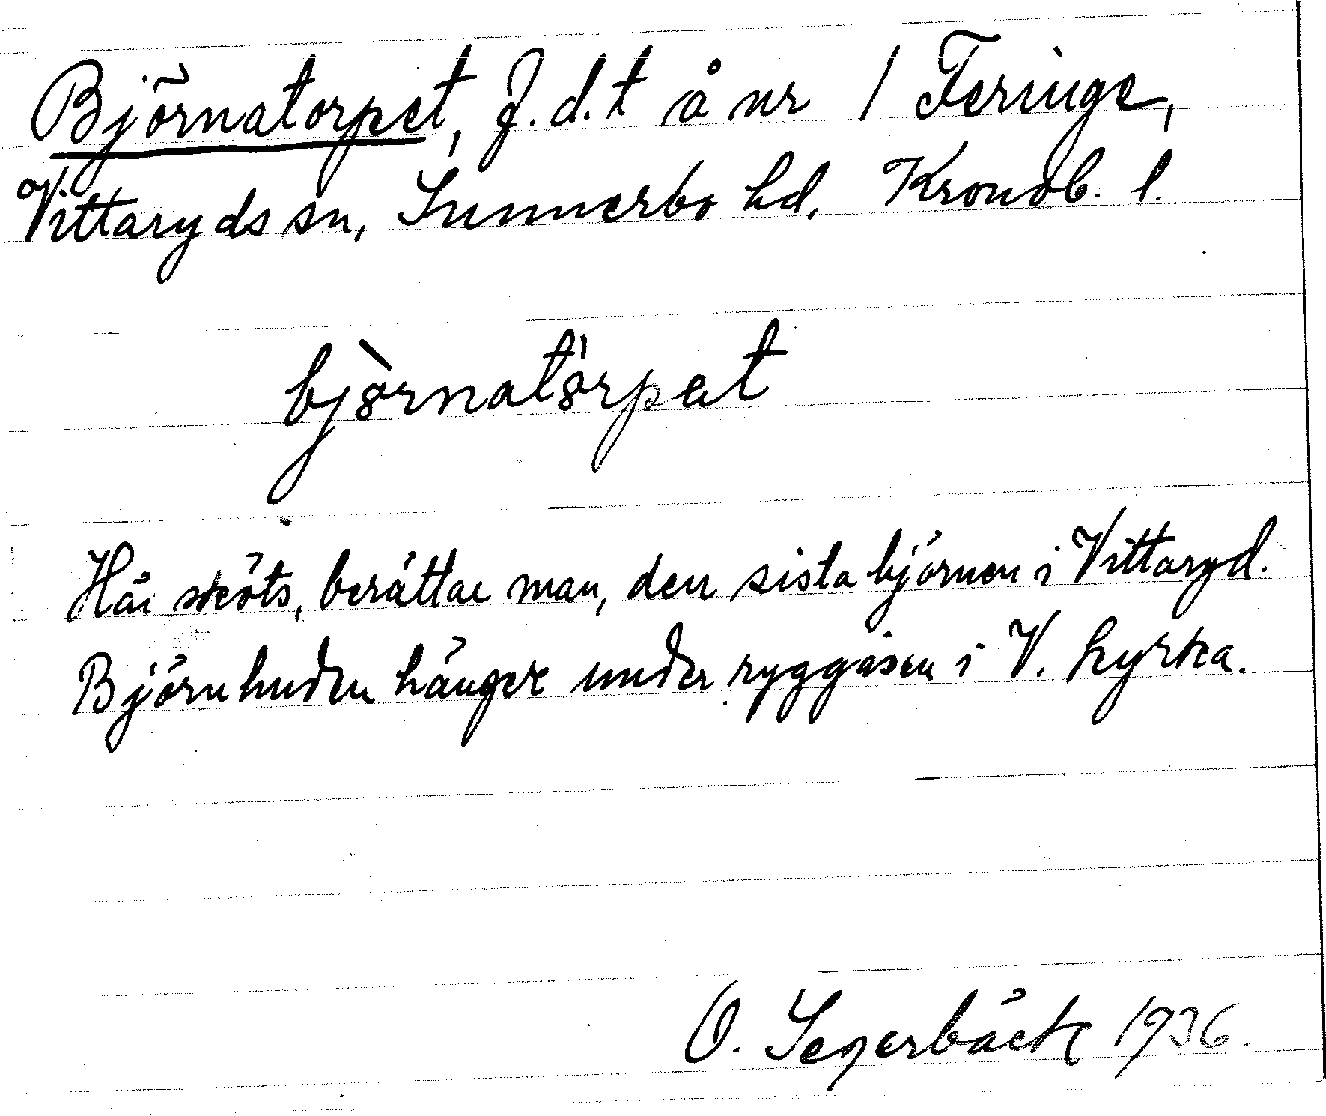 Björnatorpet, f.d.t å nr 1 Feringe,
Vittaryds sn, Sunnerbo hd, Kronob. l.
bjòrnatórpat
Här sköts, berättar man, den sista björnen i Vittaryd.
Björnhuden hänger under ryggåsen i V. kyrka.
O. Segerbäck 1936.